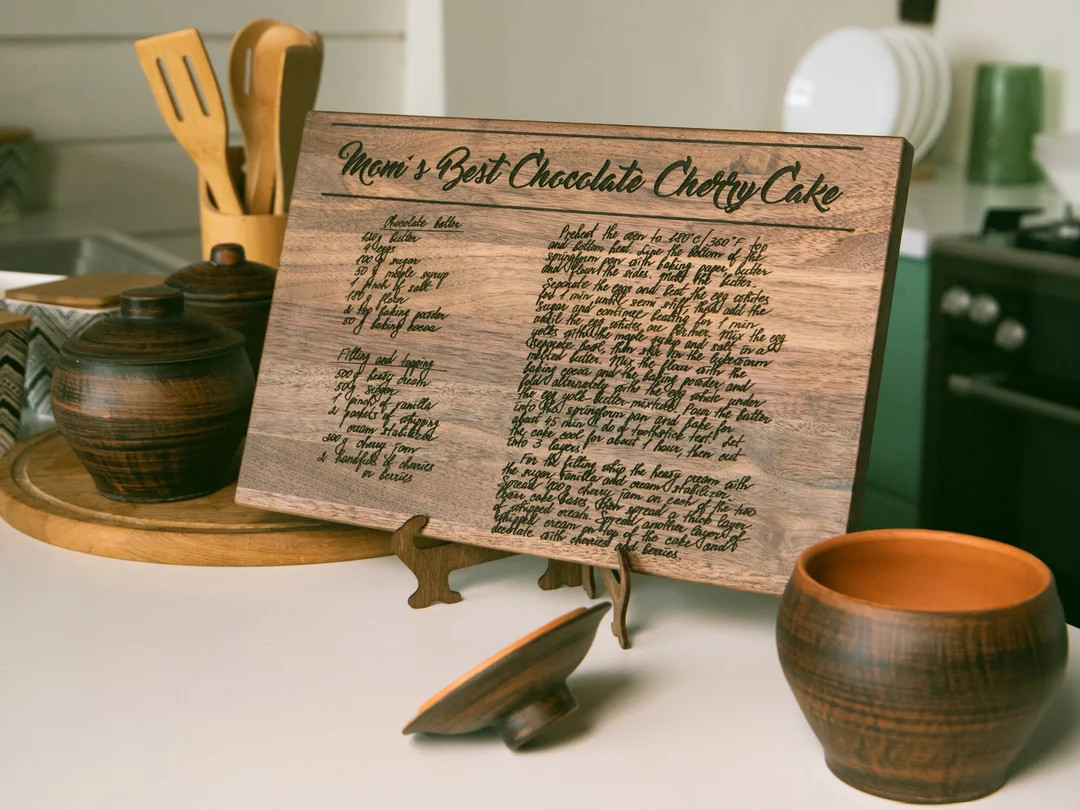 Mom's Best Chocolate Cherry Cake
Chocolate batter
butter
4 eggs
200 g sugar
50 g maple syrup
1 pinch of salt
180 g flour
2 tsp baking powder
50 g baking cocoa
Filling and topping
500 g heavy cream
50 g sugar
1 pinch of vanilla
2 packets of whipping
cream stabilized
300 g cherry jam
2 handfuls of cherries
or berries
Preheat the oven to 180°C/360°F top
and bottom heat. Line the bottom of the
springform pan with baking paper, butter
and flour the sides. Melt the butter.
Separate the eggs and beat the egg whites
for 1 min until semi stiff, then add the
sugar and continue beating for 1 min
until the egg whites are firmer. Mix the egg
yolks with the maple syrup and salt in a
separate bowl, then stir in the lukewarm
melted butter. Mix the flour with the
baking cocoa and the baking powder and
fold alternately with the egg white under
the egg yolk butter mixture. Pour the batter
into the springform pan and bake for
about 45 min - do a toothstick test! Let
the cake cool for about 1 hour, then cut
into 3 layers.
For the filling whip the heavy cream with
the sugar, vanilla and cream stabilizer.
Spread 300g cherry jam on each of the two
lower cake bases, then spread a thick layer
of whipped cream. Spread another layer of
whipped cream on top of the cake and
decolate with cherries and berries.